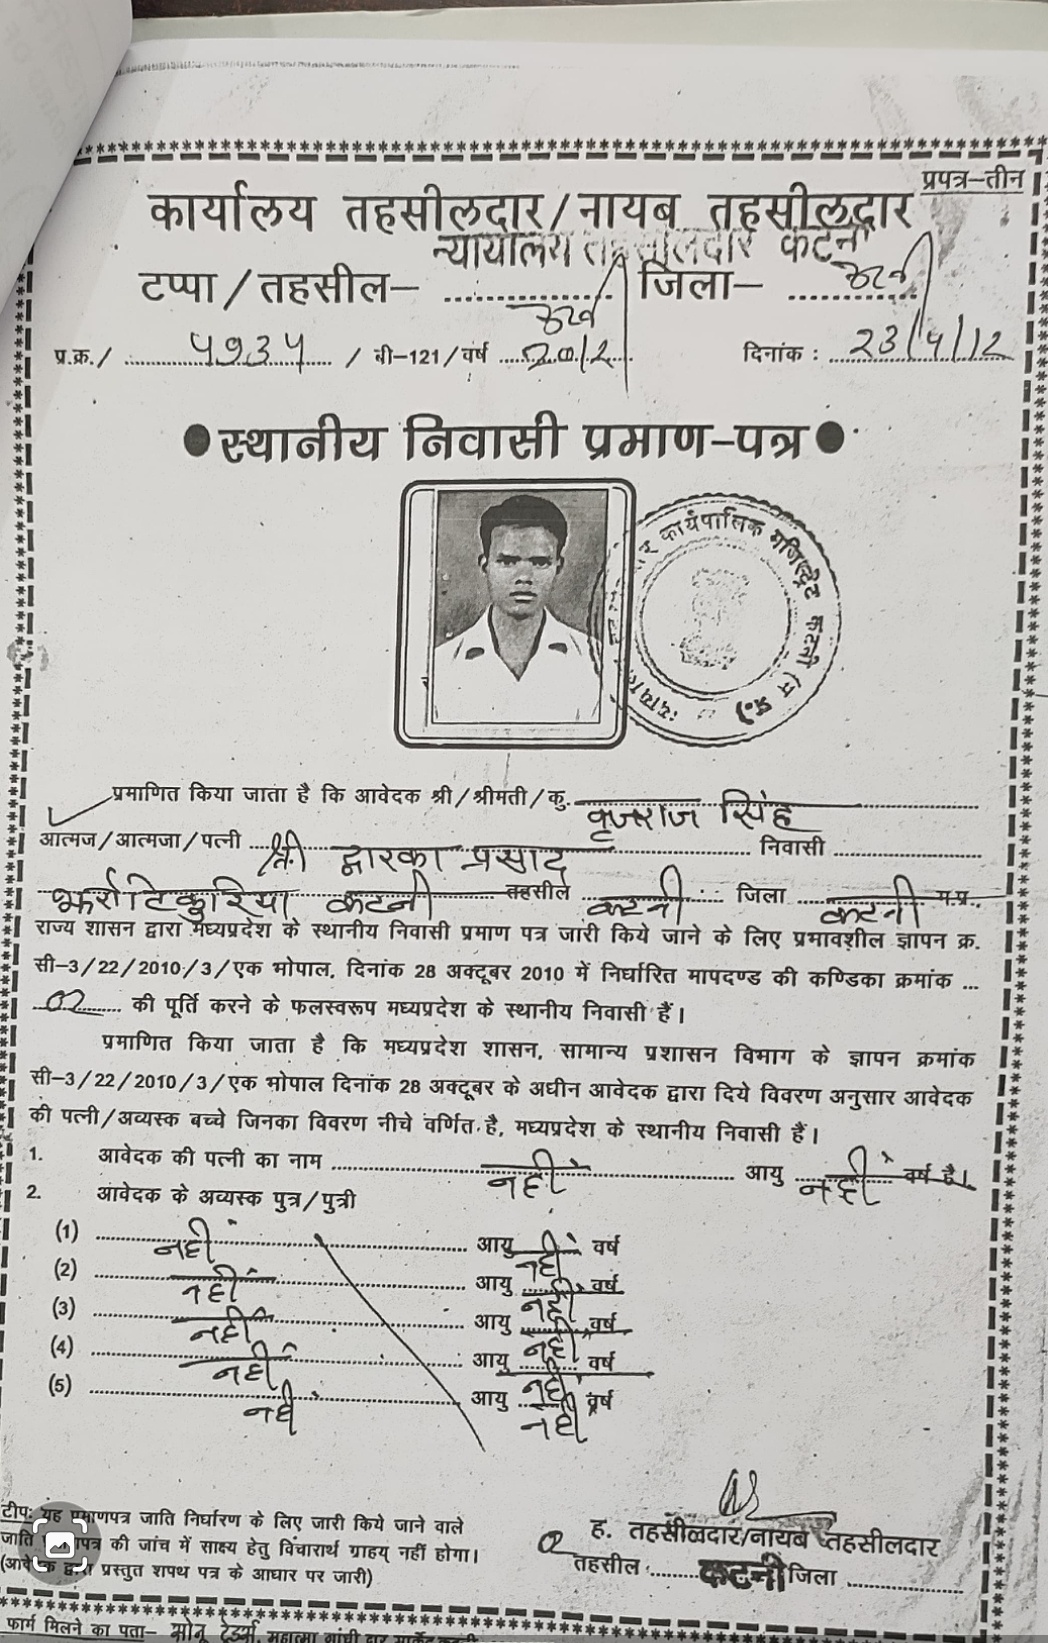 प्रपत्र–तीन
कार्यालय तहसीलदार/नायब तहसीलदार
न्यायालय तहसीलदार कटनी
टप्पा/तहसील– कटनी जिला– कटनी
प्र.क्र./ ५९३५ / बी-121/वर्ष 2012 दिनांक : 23/4/12
●स्थानीय निवासी प्रमाण-पत्र●
कार्यपालिक मजिस्ट्रेट कटनी (म.प्र.)
प्रमाणित किया जाता है कि आवेदक श्री/श्रीमती/कु. वृजराज सिंह
आत्मज/आत्मजा/पत्नी श्री द्वारका प्रसाद निवासी
झर्रा टिकुरिया कटनी तहसील कटनी जिला कटनी म.प्र.
राज्य शासन द्वारा मध्यप्रदेश के स्थानीय निवासी प्रमाण पत्र जारी किये जाने के लिए प्रभावशील ज्ञापन क्र.
सी-3/22/2010/3/एक भोपाल, दिनांक 28 अक्टूबर 2010 में निर्धारित मापदण्ड की कण्डिका क्रमांक ...
02 की पूर्ति करने के फलस्वरूप मध्यप्रदेश के स्थानीय निवासी हैं।
प्रमाणित किया जाता है कि मध्यप्रदेश शासन, सामान्य प्रशासन विभाग के ज्ञापन क्रमांक
सी-3/22/2010/3/एक भोपाल दिनांक 28 अक्टूबर के अधीन आवेदक द्वारा दिये विवरण अनुसार आवेदक
की पत्नी/अव्यस्क बच्चे जिनका विवरण नीचे वर्णित है, मध्यप्रदेश के स्थानीय निवासी हैं।
1. आवेदक की पत्नी का नाम नहीं आयु नहीं वर्ष है।
2. आवेदक के अव्यस्क पुत्र/पुत्री
(1) नहीं आयु नहीं वर्ष
(2) नहीं आयु नहीं वर्ष
(3) नहीं आयु नहीं वर्ष
(4) नहीं आयु नहीं वर्ष
(5) नहीं आयु नहीं वर्ष
टीप: यह प्रमाणपत्र जाति निर्धारण के लिए जारी किये जाने वाले
जाति पत्र की जांच में साक्ष्य हेतु विचारार्थ ग्राहय् नहीं होगा।
(आवेदक द्वारा प्रस्तुत शपथ पत्र के आधार पर जारी)
ह. तहसीलदार/नायब तहसीलदार
तहसील कटनी जिला
फार्म मिलने का पता– सोनू ट्रेडर्स, महात्मा गांधी द्वार